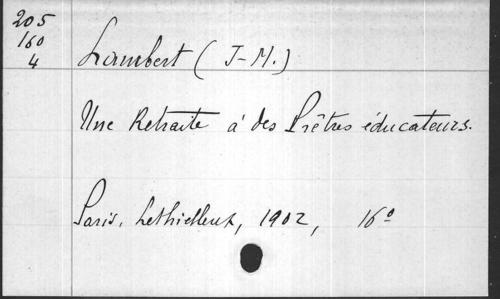 205
160
4
Lambert (J-M.)
Une Retraite à des Prêtres éducateurs.
Paris, Lethielleux, 1902, 16°